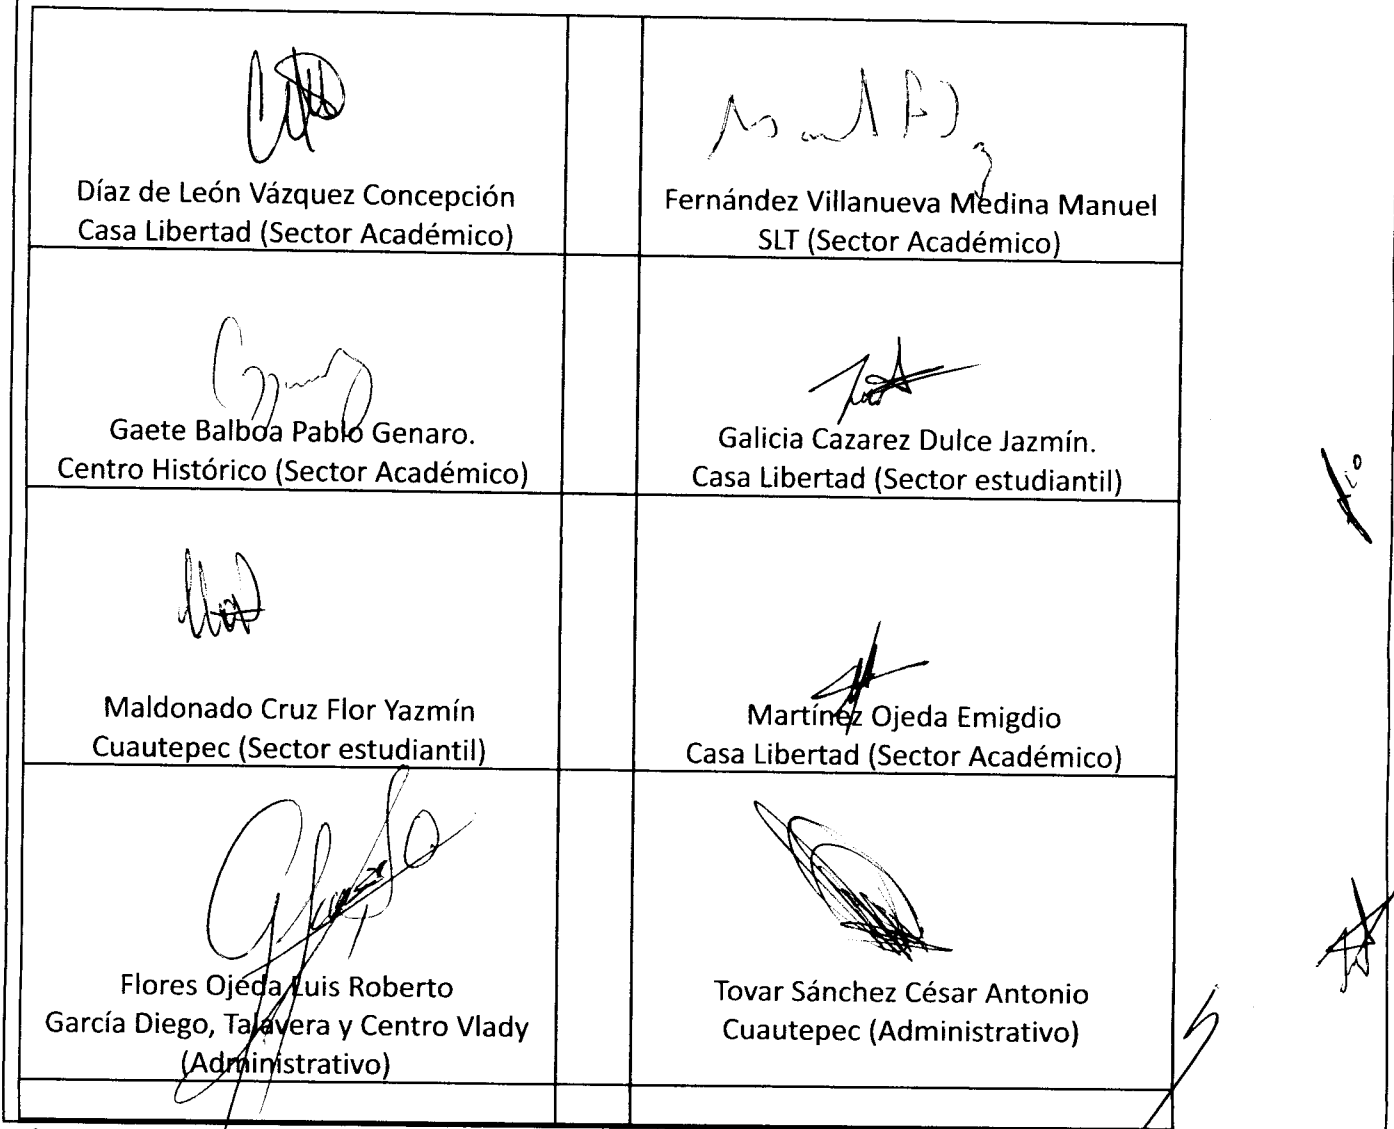 Díaz de León Vázquez Concepción
Casa Libertad (Sector Académico)
Fernández Villanueva Medina Manuel
SLT (Sector Académico)
Gaete Balboa Pablo Genaro.
Centro Histórico (Sector Académico)
Galicia Cazarez Dulce Jazmín.
Casa Libertad (Sector estudiantil)
Maldonado Cruz Flor Yazmín
Cuautepec (Sector estudiantil)
Martínez Ojeda Emigdio
Casa Libertad (Sector Académico)
Flores Ojeda Luis Roberto
García Diego, Talavera y Centro Vlady
(Administrativo)
Tovar Sánchez César Antonio
Cuautepec (Administrativo)